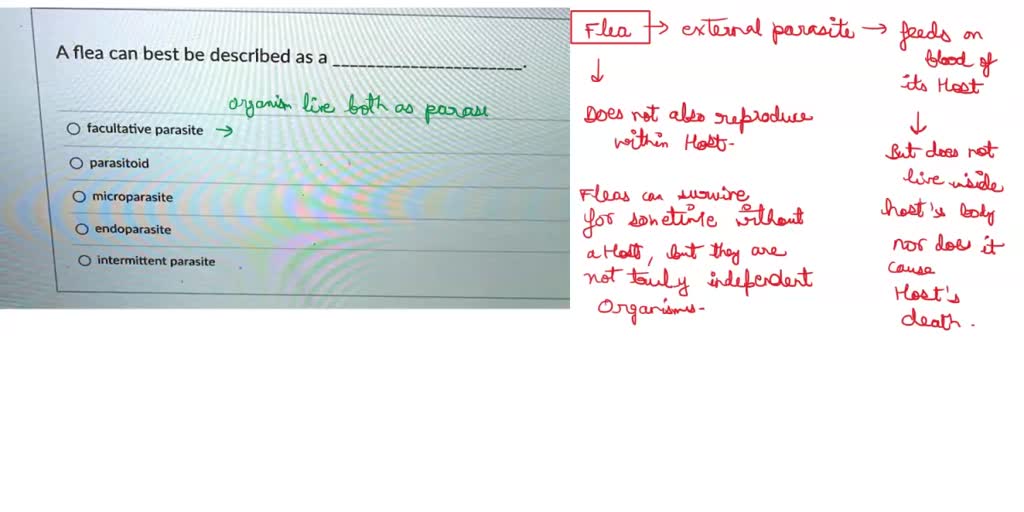 A flea can best be described as a ____________________.
organism live both as paras
facultative parasite →
parasitoid
microparasite
endoparasite
intermittent parasite
Flea → external parasite → feeds on
blood of
its Host
↓
Does not also reproduce
within Host-
Fleas can survive
for sometime without
a Host, but they are
not truly independent
Organisms-
↓
But does not
live inside
host's body
nor does it
cause
Host's
death.